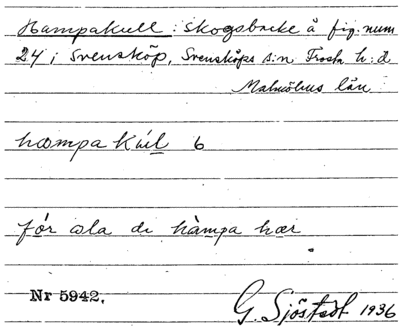 Hampakull: skogsbacke å fig. num
24 i Svensköp, Svensköps s:n Frosta h:d
Malmöhus län
hæmpa kúl 6
fór ala de hàmpa hær
Nr 5942.
G. Sjöstedt 1936